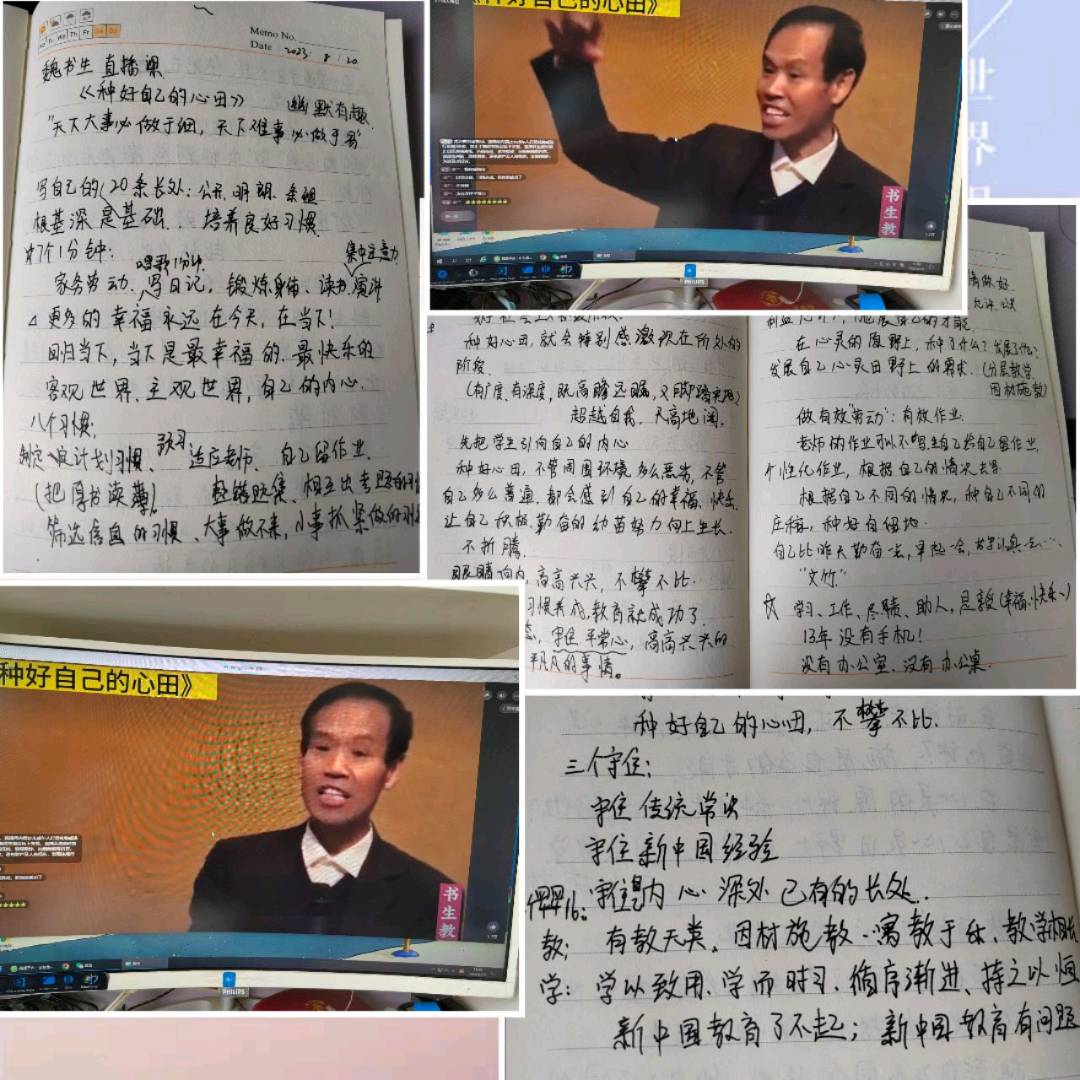 Memo No.
Date 2023. 8 / 20
魏书生 直播课
《种好自己的心田》 幽默有趣
"天下大事必做于细，天下难事必做于易"
写自己的(20条长处：公开、明朗、条
根基深是基础．．培养良好习惯
7个1分钟：
唱歌1分钟 集中注意力
家务劳动、写日记，锻炼身体、读书、演讲
更多的幸福永远在今天，在当下！
回归当下，当下是最幸福的、最快乐的
客观世界、主观世界，自己的内心．
八个习惯：
制定计划习惯、预习 适应老师、自己留作业、
(把厚书读薄)、整错题集、相互出考题的习
筛选信息的习惯、大事做不来，小事抓紧做的习惯
《种好自己的心田》
书生教
PHILIPS
种好心田，就会特别感激现在所处的
阶段．
(有广度、有深度，既高瞻远瞩，又脚踏实地)
超越自我．天高地阔．
先把学生引向自己的内心
种好心田，不管周围环境多么恶劣，不管
自己多么普通，都会感到自己的幸福、快乐．
让自己积极、勤奋的幼苗努力向上生长．
不折腾．
眼睛向内，高高兴兴，不攀不比．
习惯养成，教育就成功了
守住平常心，高高兴兴的
平凡的事情。
情做好．
在心灵的原野上，种了什么？发展了什么？
发展自己心灵田野上的需求．(分层教学
因材施教)
做有效"劳动"：有效作业．
老师的作业可以不写，自己给自己留作业，
个性化作业，根据自己的情况去写．
根据自己不同的情况，种自己不同的
庄稼，种好自留地．
自己比昨天勤奋一点，早起一会，书写认真一点…．
"文竹"
学习、工作、尽责、助人，是享受(幸福、快乐～)
13年没有手机！
没有办公室、没有办公桌．
种好自己的心田》
书生教
PHILIPS
种好自己的心田，不攀不比．
三个守住：
守住传统常识
守住新中国经验
守住内心深处已有的长处．
教：有教无类、因材施教、寓教于乐、教学相长
学：学以致用、学而时习、循序渐进、持之以恒
新中国教育了不起；新中国教育有问题
世界